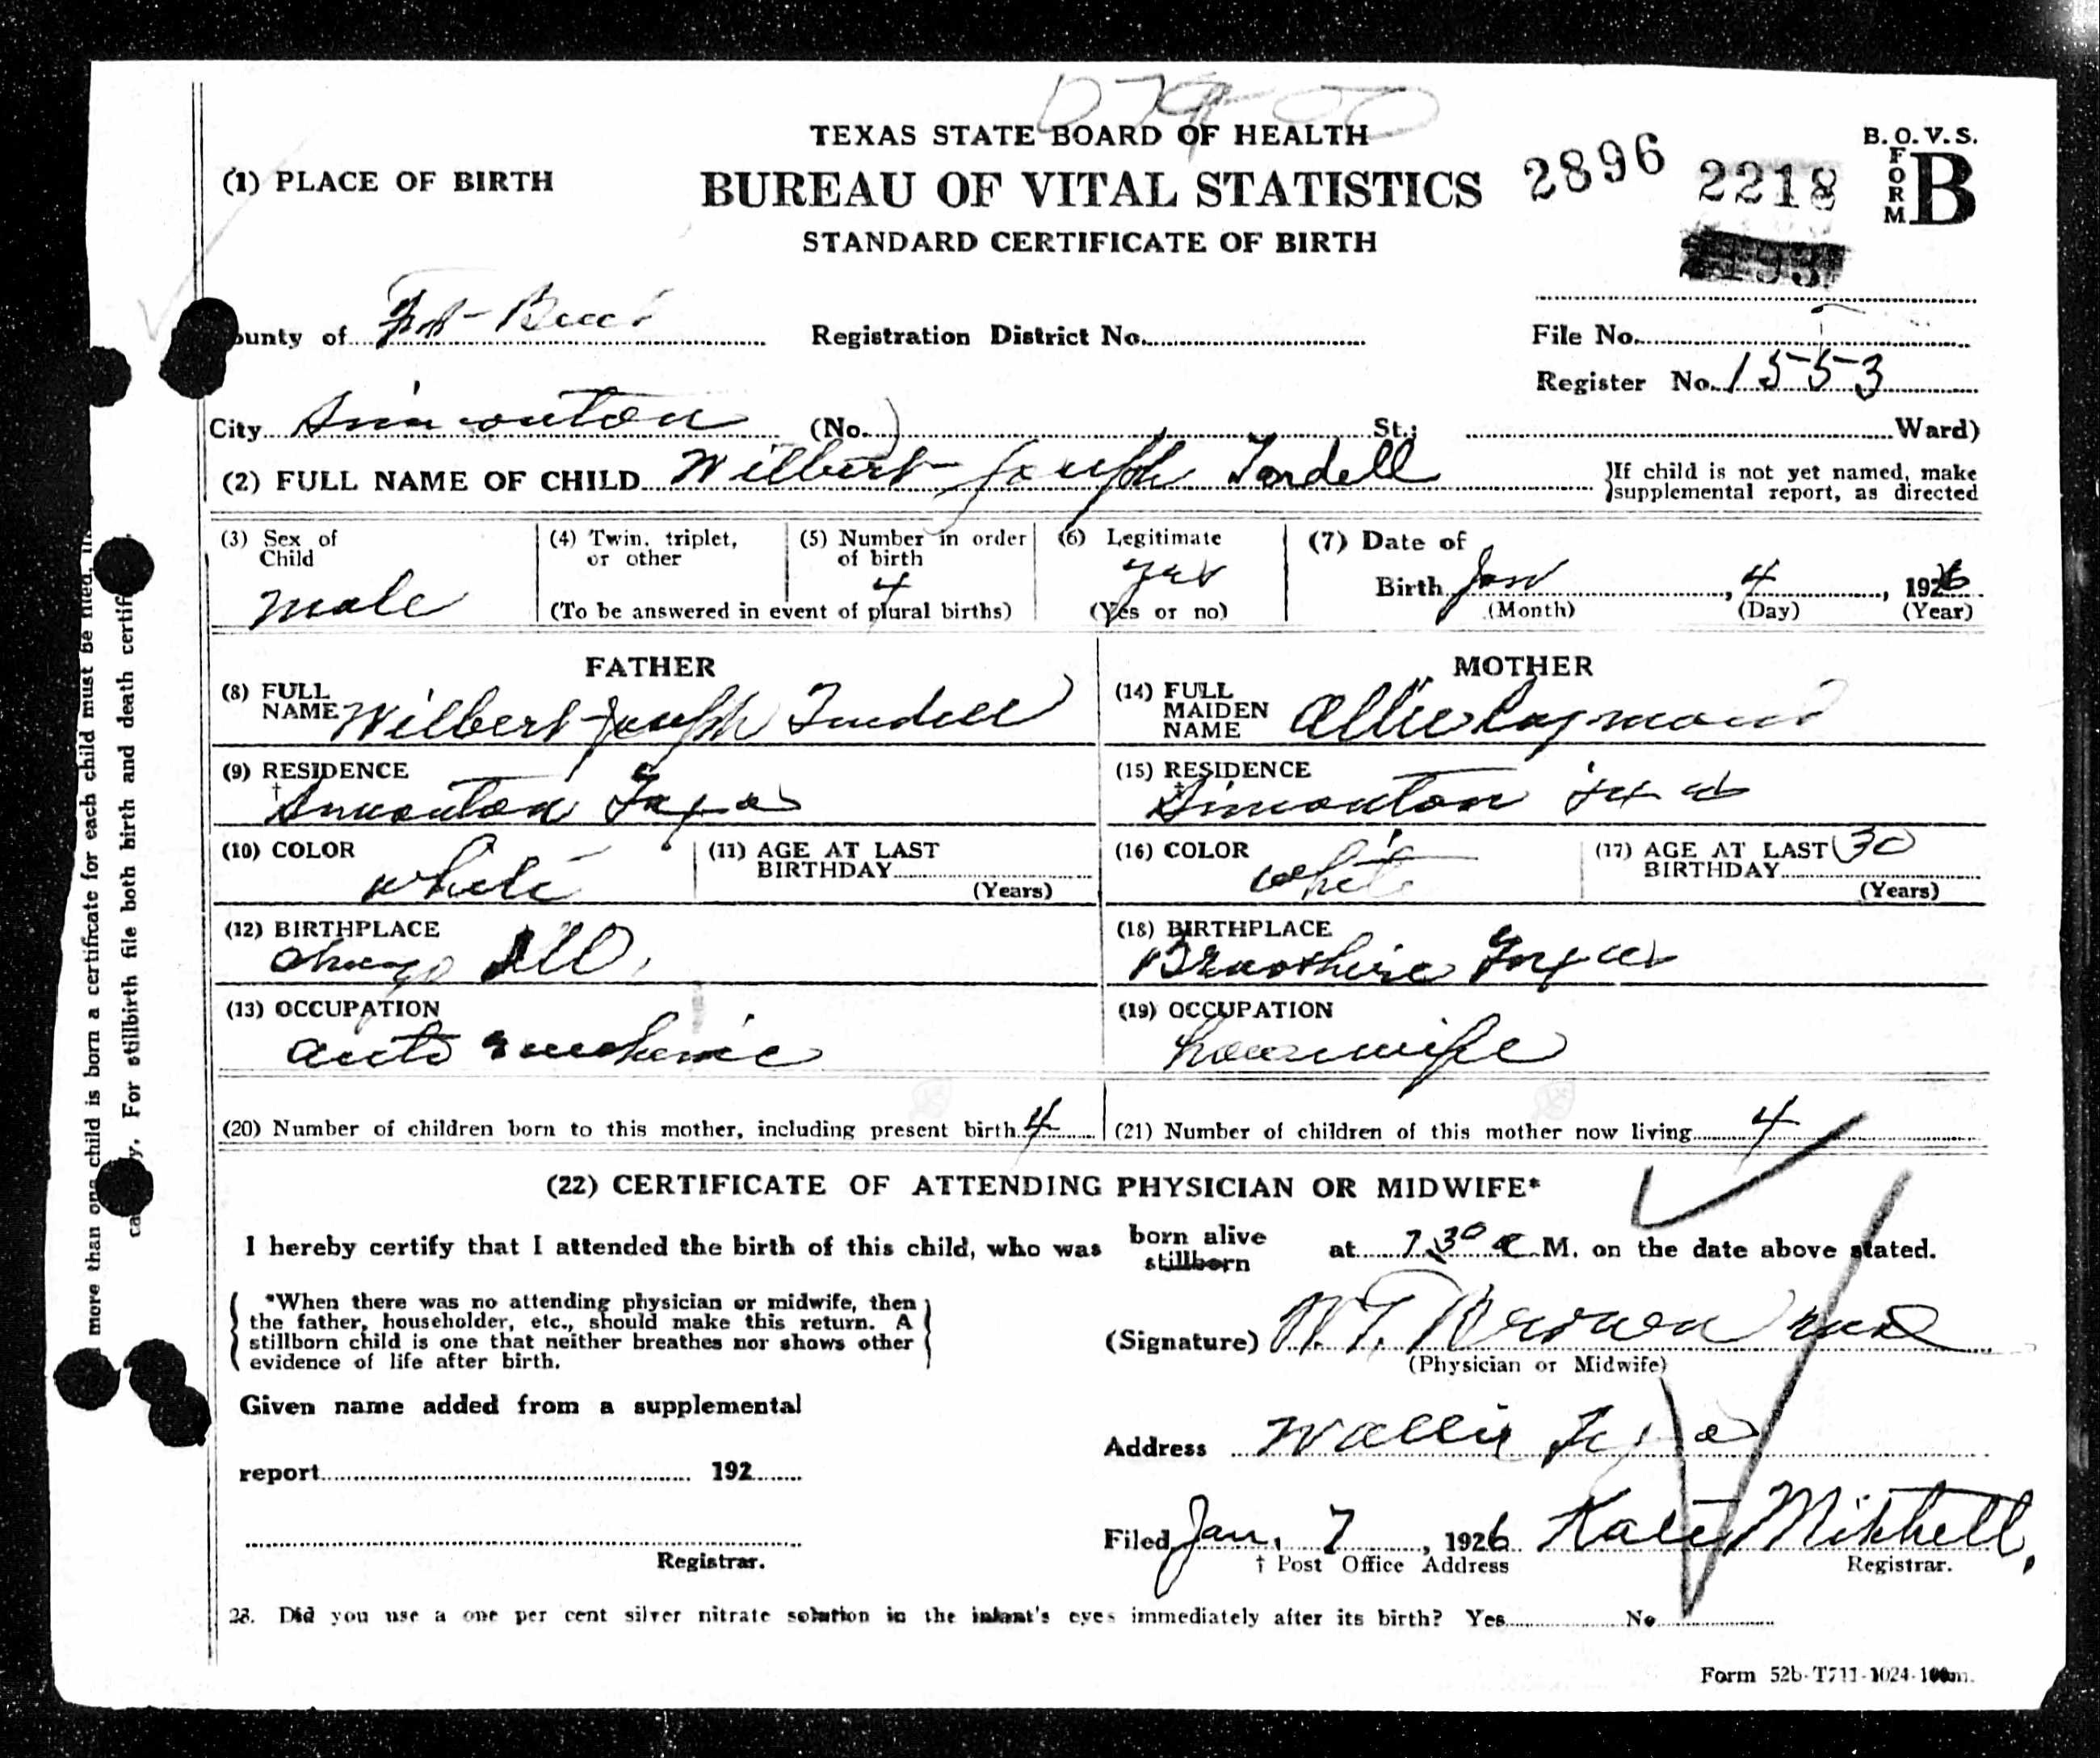 TEXAS STATE BOARD OF HEALTH
BUREAU OF VITAL STATISTICS
STANDARD CERTIFICATE OF BIRTH
2896 2218
B.O.V.S.
FORM B
(1) PLACE OF BIRTH
ounty of Ft Bend
Registration District No.
File No.
Register No. 1553
City Simonton (No. ) St.; Ward)
(2) FULL NAME OF CHILD Wilbert Joseph
}If child is not yet named, make
}supplemental report, as directed
(3) Sex of Child
male
(4) Twin, triplet, or other
(5) Number in order of birth
4
(To be answered in event of plural births)
(6) Legitimate
yes
(Yes or no)
(7) Date of
Birth Jan, 4, 1926
(Month) (Day) (Year)
FATHER
(8) FULL NAME Wilbert Joseph
(9) RESIDENCE
† Simonton Texas
(10) COLOR
white
(11) AGE AT LAST BIRTHDAY
(Years)
(12) BIRTHPLACE
Chicago Ill.
(13) OCCUPATION
auto mechanic
MOTHER
(14) FULL MAIDEN NAME Allie
(15) RESIDENCE
‡ Simonton Texas
(16) COLOR
white
(17) AGE AT LAST BIRTHDAY 30
(Years)
(18) BIRTHPLACE
Texas
(19) OCCUPATION
housewife
(20) Number of children born to this mother, including present birth 4
(21) Number of children of this mother now living 4
(22) CERTIFICATE OF ATTENDING PHYSICIAN OR MIDWIFE*
I hereby certify that I attended the birth of this child, who was born alive stillborn at 7 30 a M. on the date above stated.
*When there was no attending physician or midwife, then
the father, householder, etc., should make this return. A
stillborn child is one that neither breathes nor shows other
evidence of life after birth.
(Signature) Brown MD
(Physician or Midwife)
Given name added from a supplemental
report 192
Registrar.
Address Wallis Texas
Filed Jan. 7, 1926 Kate Mitchell,
† Post Office Address
Registrar.
23. Did you use a one per cent silver nitrate solution in the infant's eyes immediately after its birth? Yes No
Form 52b-T711-1024-100m.
more than one child is born a certificate for each child must be filed,
y. For stillbirth file both birth and death certif